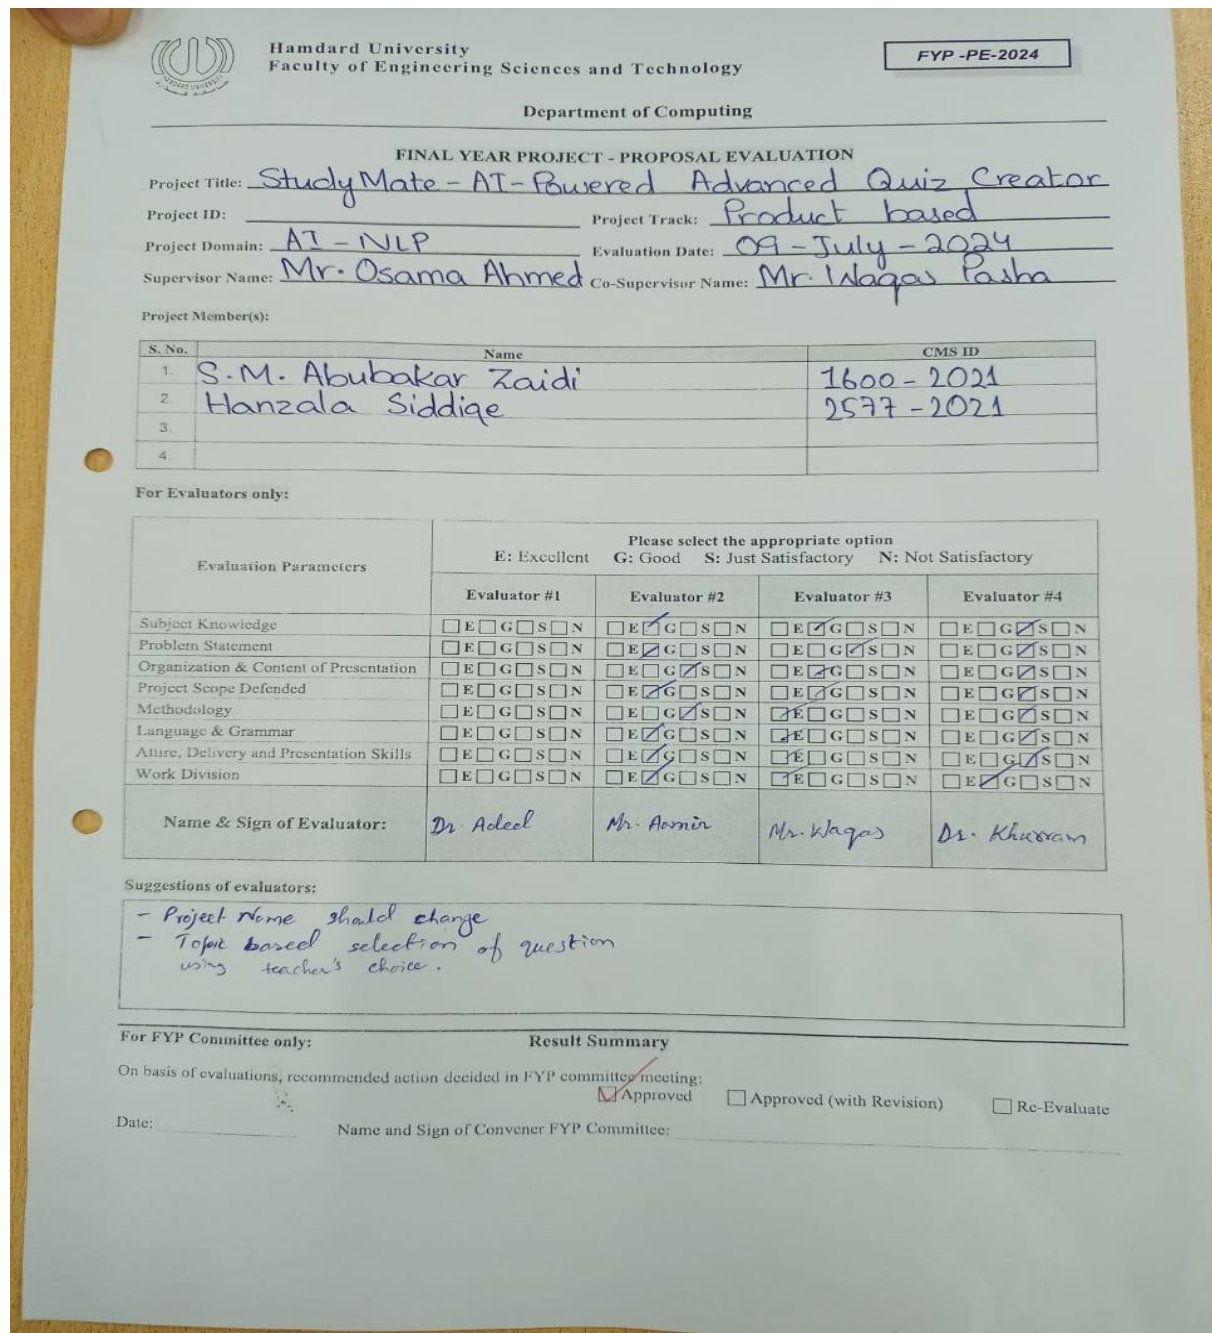 Hamdard University
Faculty of Engineering Sciences and Technology
FYP -PE-2024
Department of Computing
FINAL YEAR PROJECT - PROPOSAL EVALUATION
Project Title: StudyMate - AI-Powered Advanced Quiz Creator
Project ID: Project Track: Product based
Project Domain: AI - NLP Evaluation Date: 09 - July - 2024
Supervisor Name: Mr. Osama Ahmed Co-Supervisor Name: Mr. Waqas Pasha
Project Member(s):
S. No. Name CMS ID
1. S.M. Abubakar Zaidi 1600 - 2021
2. Hanzala Siddiqe 2577 - 2021
3.
4.
For Evaluators only:
Evaluation Parameters
Please select the appropriate option
E: Excellent G: Good S: Just Satisfactory N: Not Satisfactory
Evaluator #1 Evaluator #2 Evaluator #3 Evaluator #4
Subject Knowledge E G S N E G S N E G S N E G S N
Problem Statement E G S N E G S N E G S N E G S N
Organization & Content of Presentation E G S N E G S N E G S N E G S N
Project Scope Defended E G S N E G S N E G S N E G S N
Methodology E G S N E G S N E G S N E G S N
Language & Grammar E G S N E G S N E G S N E G S N
Attire, Delivery and Presentation Skills E G S N E G S N E G S N E G S N
Work Division E G S N E G S N E G S N E G S N
Name & Sign of Evaluator: Dr. Adeel Mr. Aamir Mr. Waqas Dr. Khurram
Suggestions of evaluators:
- Project Name should change
- Topic based selection of question
using teacher's choice.
For FYP Committee only: Result Summary
On basis of evaluations, recommended action decided in FYP committee meeting:
Approved Approved (with Revision) Re-Evaluate
Date: Name and Sign of Convener FYP Committee: